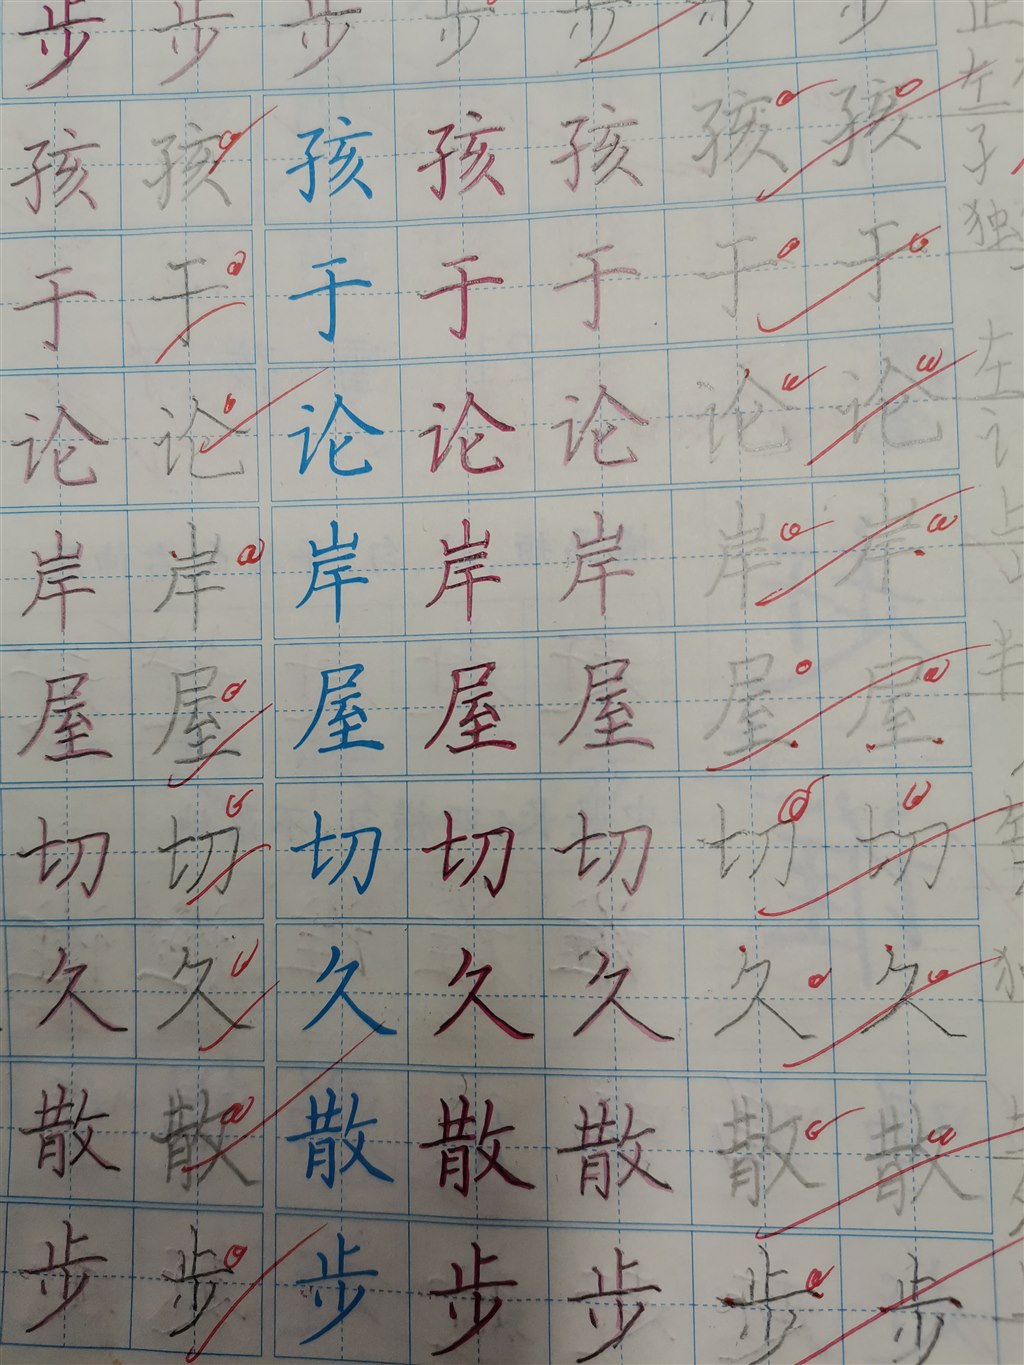 步 步 步 步 步 步 步 止
孩 孩 孩 孩 孩 孩 孩 子
于 于 于 于 于 于 于 独
论 论 论 论 论 论 论 左 讠
岸 岸 岸 岸 岸 岸 岸
屋 屋 屋 屋 屋 屋 屋 半
切 切 切 切 切 切 切
久 久 久 久 久 久 久
散 散 散 散 散 散 散
步 步 步 步 步 步 步